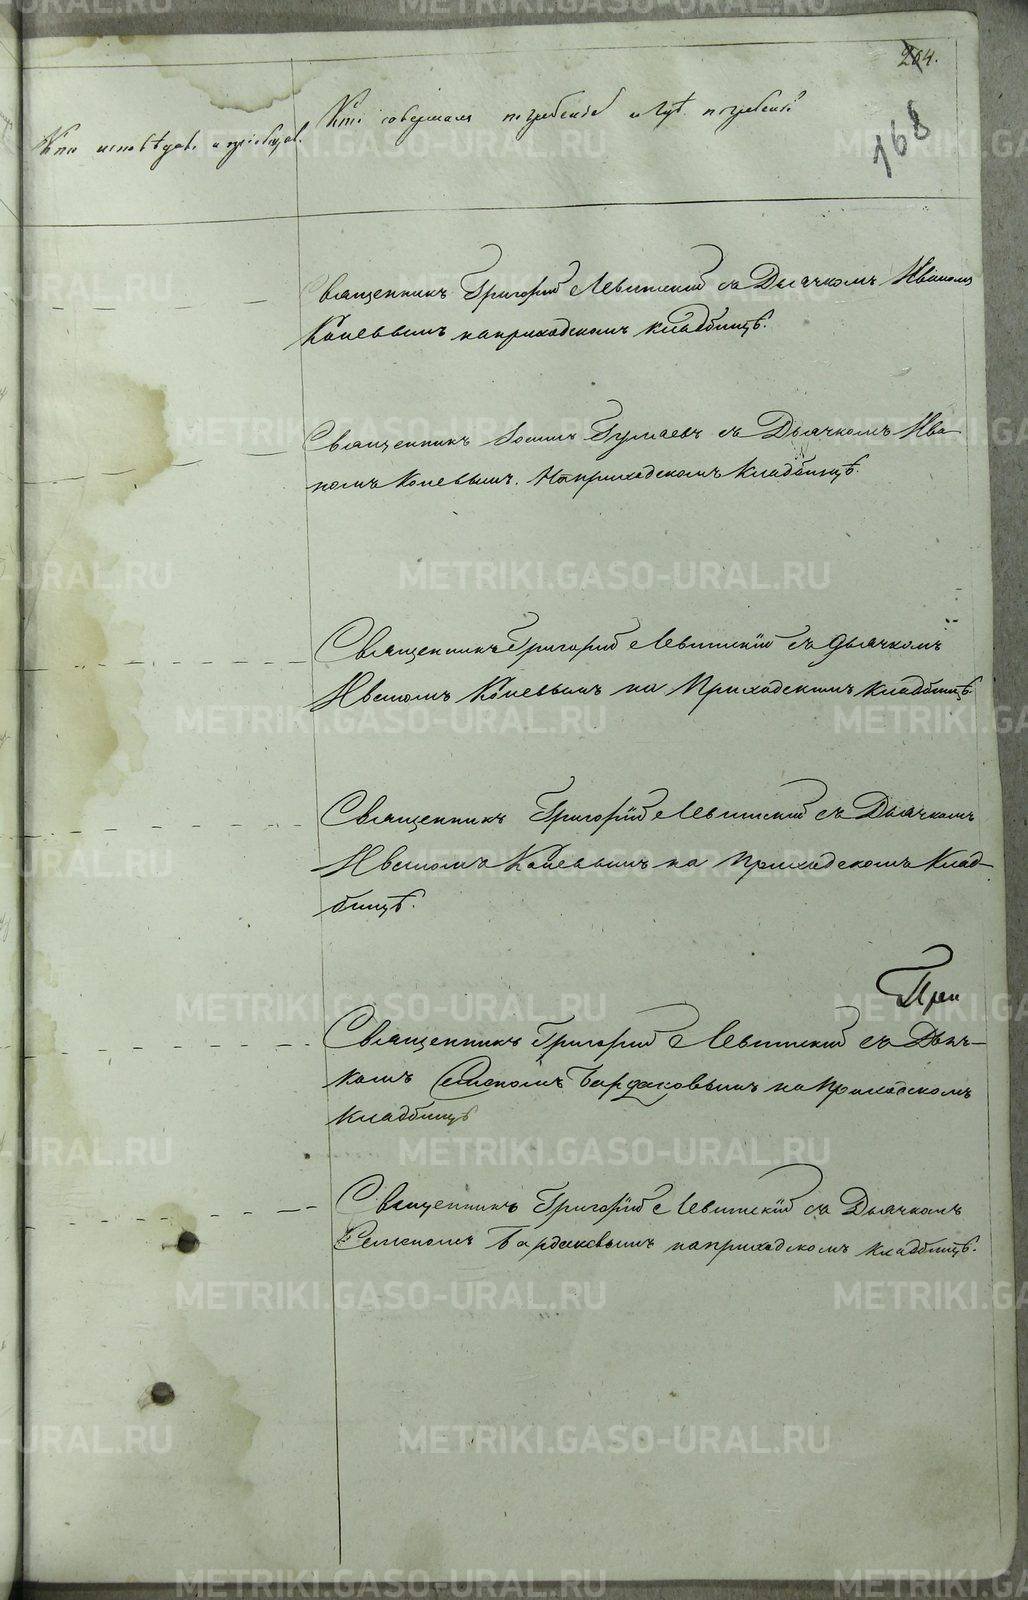 204.
168
Кто исповѣдов. и пріобщал.
Кто совершалъ погребеніе и гдѣ погребены?
Священникъ Григорій Левитскій съ Дьячкомъ Иваномъ
Коневымъ на приходскомъ кладбищѣ.
Священникъ Гуляевъ съ Дьячкомъ Ива-
номъ Коневымъ. На приходскомъ кладбищѣ.
Священникъ Григорій Левитскій съ дьячкомъ
Иваномъ Коневымъ на Приходскомъ кладбищѣ.
Священникъ Григорій Левитскій съ Дьячкомъ
Иваномъ Коневымъ на приходскомъ Клад-
бищѣ.
Священникъ Григорій Левитскій съ Дьяч-
комъ Семеномъ Бардаковымъ на приходскомъ
кладбищѣ
Священникъ Григорій Левитскій съ Дьячкомъ
Семеномъ Бардаковымъ на приходскомъ кладбищѣ.
METRIKI.GASO-URAL.RU